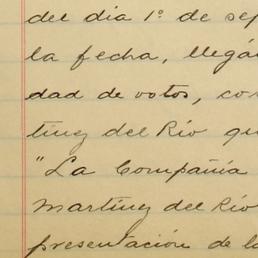 del dia 1º de sep
la fecha, llegá
dad de votos, con
tinez del Río qu
"La Compañia
Martinez del Río
presentación de la